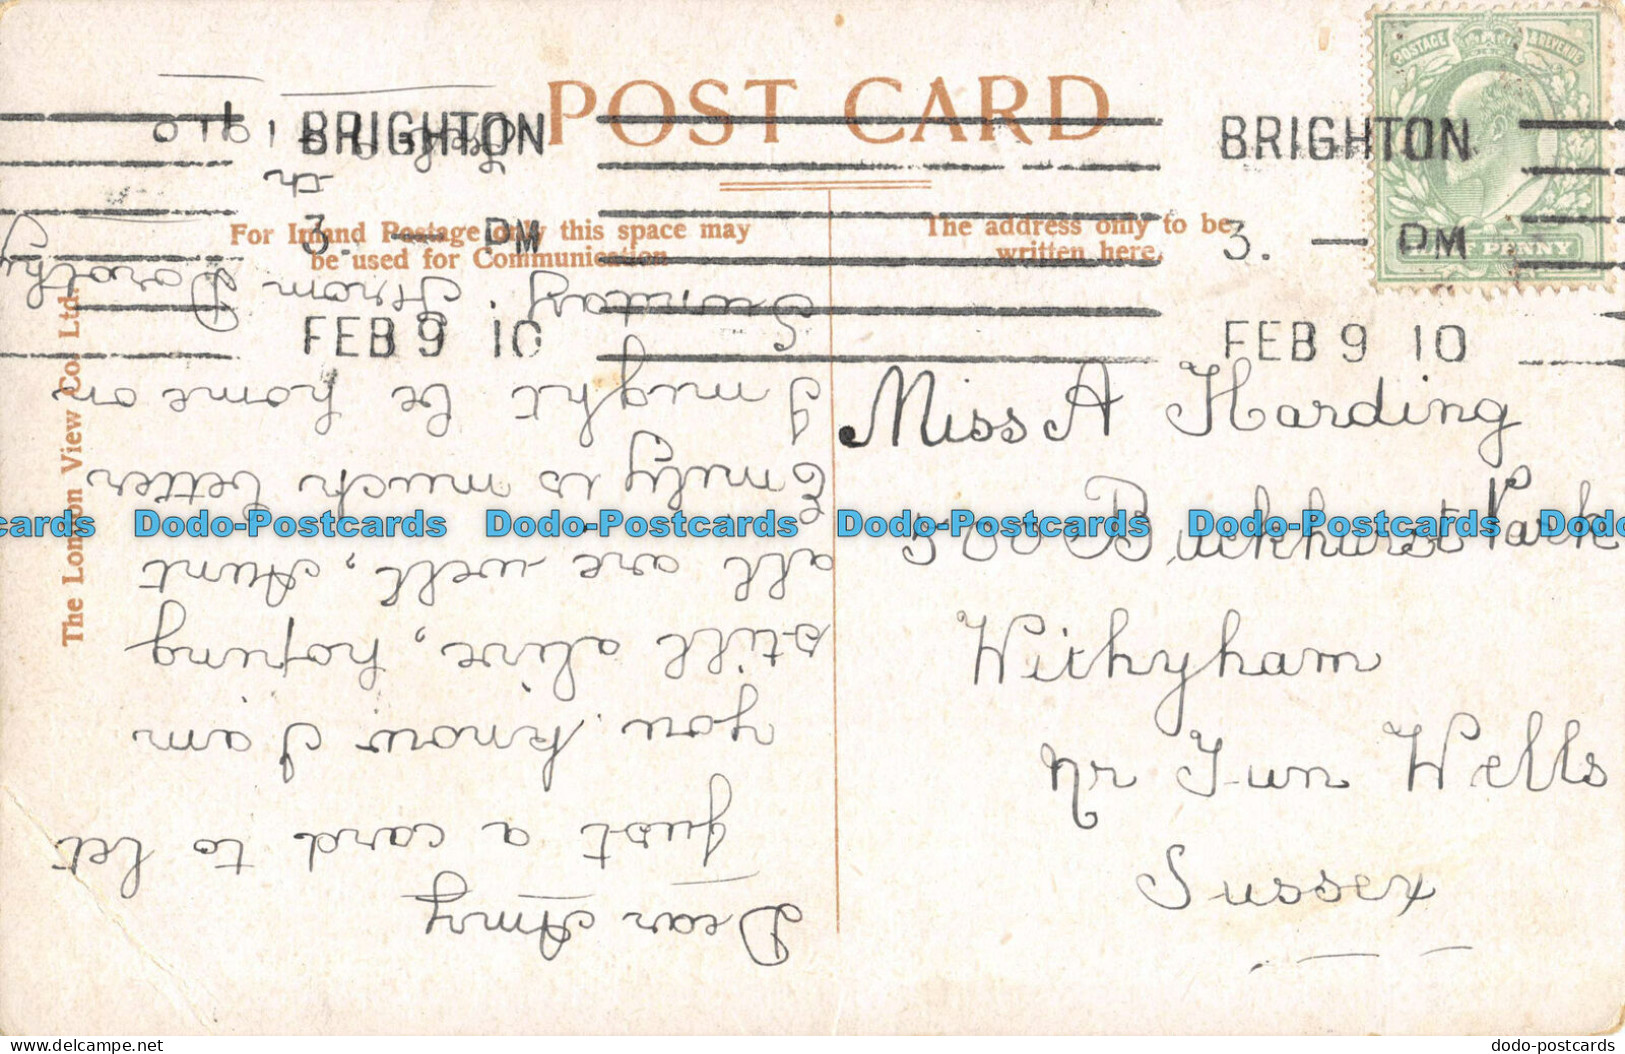 POST CARD
BRIGHTON
3. — PM
FEB 9 10
BRIGHTON
3. — PM
FEB 9 10
POSTAGE & REVENUE
HALF PENNY
For Inland Postage only this space may
be used for Communication
The address only to be
written here.
The London View Co. Ltd.
Miss A Harding
500 Buckhurst Park
Withyham
nr Tun Wells
Sussex
Dear Amy
just a card to let
you know I am
still alive, hoping
all are well, Aunt
Emily is much better
I might be home on
Sunday. From Dorothy
th
1910
cards Dodo-Postcards Dodo-Postcards Dodo-Postcards Dodo-Postcards Dodo
delcampe.net
dodo-postcards